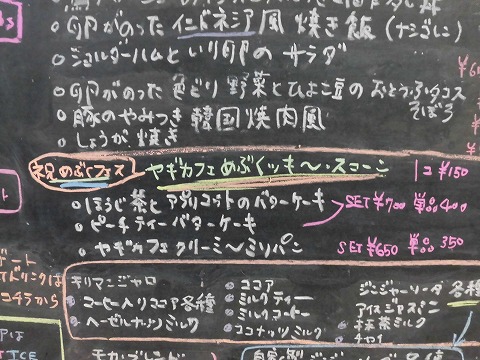 卵がのった インドネシア風 焼き飯 (ナシゴレン)
ショルダーハムと いり卵の サラダ
卵がのった 色どり 野菜と ひよこ豆の おとうふタコス
そぼろ
豚の やみつき 韓国焼肉風
しょうが 焼き
祝 めぶくフェス ヤギカフェめぶくッキ〜・スコーン 1コ ¥150
ほうじ茶と アプリコットの バターケーキ SET ¥700 単品 400
ピーチティーバターケーキ
ヤギカフェクリーミ〜ミリパン SET ¥650 単品 350
キリマンジャロ
ココアー
ジンジャーソーダ 各種
ドリンクは
コーヒー入りココア各種
ミルクティー
アイスジアスパン
コチラから
ヘーゼルナッツミルク
ミルクコーヒー
抹茶ミルク
ココナッツミルク
チャイ
ICE